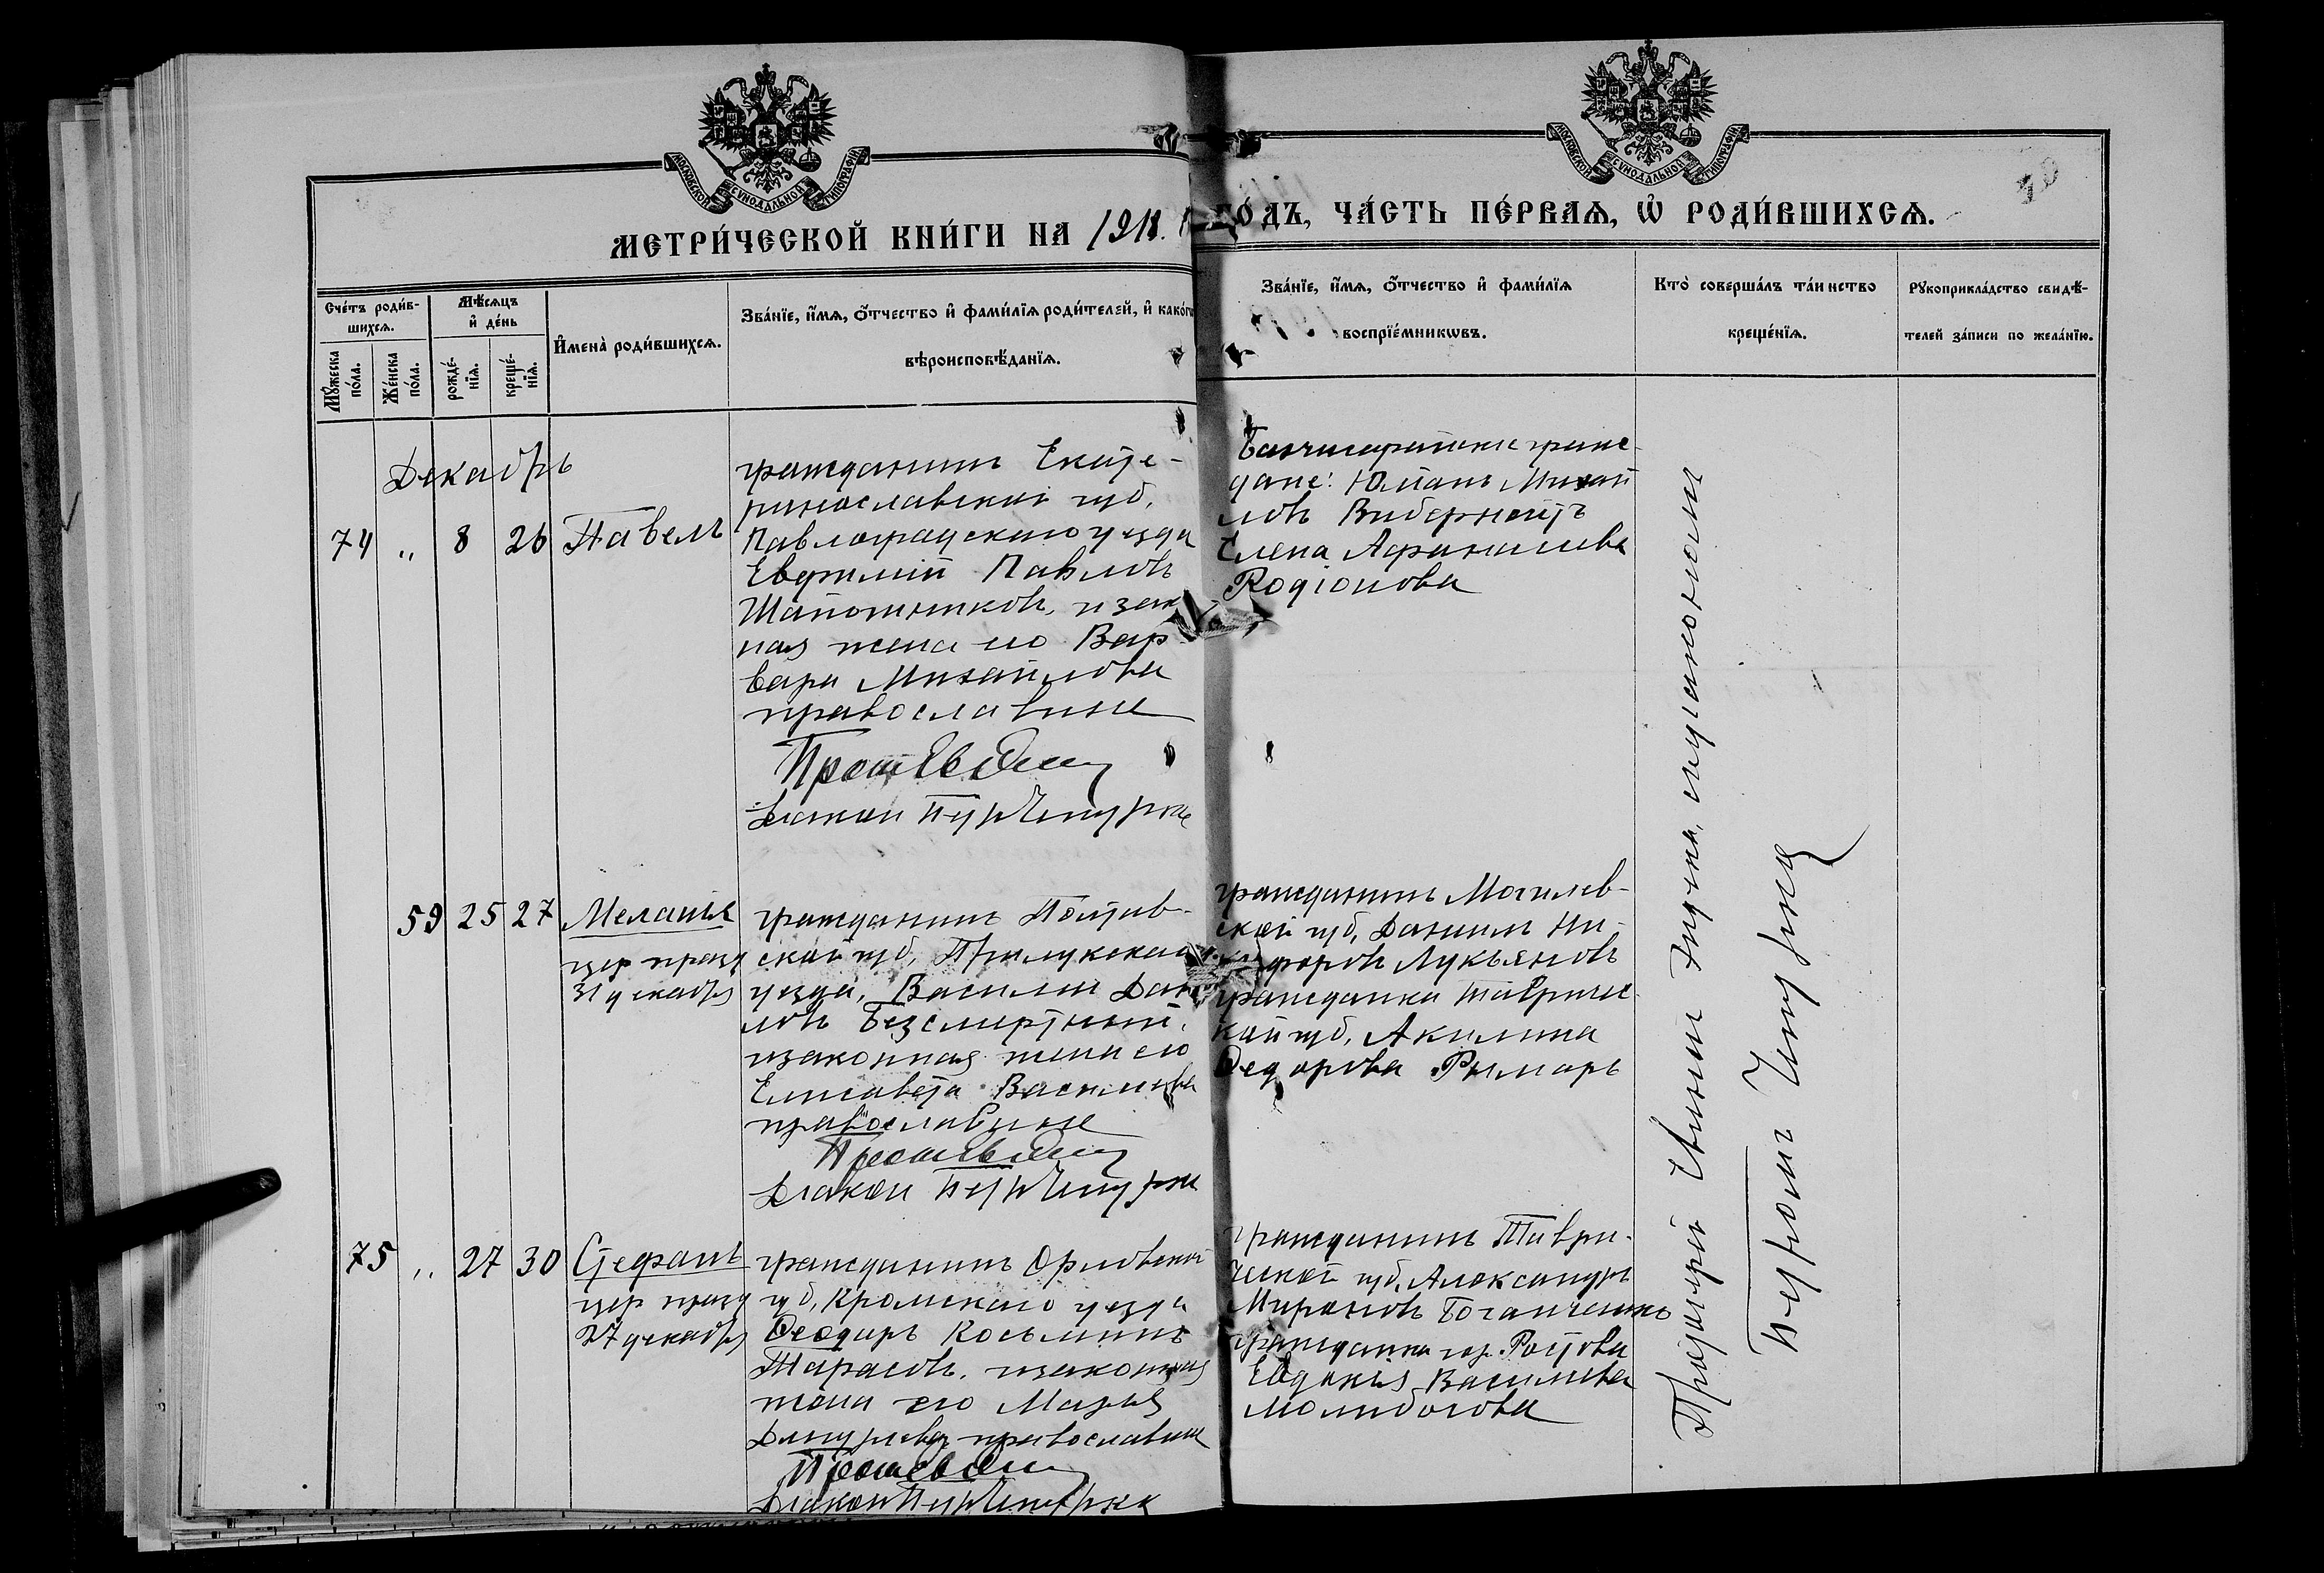 МОСКОВСКОЙ СѴНОДАЛЬНОЙ ТИПОГРАФІИ
МОСКОВСКОЙ СѴНОДАЛЬНОЙ ТИПОГРАФІИ
МЕТРИ́ЧЕСКОЙ КНИ́ГИ НА 1918 ГО́ДЪ, ЧА́СТЬ ПЕ́РВАЯ, Ѽ РОДИ́ВШИХСЯ.
Сче́тъ роди́в-
шихся.
Мѣ́сяцъ
и҆ де́нь
Мꙋ́жеска
по́ла.
Же́нска
по́ла.
рожде́-
нїя.
креще́-
нїя.
И҆мена̀ роди́вшихся.
Зва́нїе, и҆́мя, ѻ҆́тчество и҆ фами́лїя роди́телей, и҆ како́гѡ
вѣроисповѣ́данїя.
Зва́нїе, и҆́мя, ѻ҆́тчество и҆ фами́лїя
воспрїе́мникѡвъ.
Кто̀ соверша́лъ та́инство
креще́нїя.
Рꙋкоприкла́дство свидѣ́-
телей за́писи по жела́нїю.
Декабрь
74 " 8 26 Павелъ
гражданинъ Екате-
ринославской губ.
Павлоградскаго уезда
Евфимій Павловъ
Шапошниковъ, и зак
ная жена его Вар-
вара Михайлова
православные
Прот
Діакон
граж
дане: Юліанъ Михай
ловъ
Елена Афанасиева
Родіонова
59 25 27 Меланія
31 декабря
гражданинъ Полтав-
ской губ, Прилукскаго
уезда, Василій Дани
ловъ Безсмертный,
и законная жена его
Елисавета Василиева
православные
Діакон
гражданинъ Могилев-
ской губ, Даниилъ Ни-
кифоровъ Лукьяновъ
гражданка Тавричес
кой губ, Акилина
Федорова Рымарь
75 " 27 30 Стефанъ
27 декабря
гражданинъ Орловской
губ, Кромскаго уезда
Феодоръ Косьминъ
Тарасовъ, и законная
жена его Марья
православные
Діакон
гражданинъ Таври-
ческой губ, Александръ
Мироновъ
гражданка гор. Ростова
Евдокия Василиева
Молибогова
Протоіерей